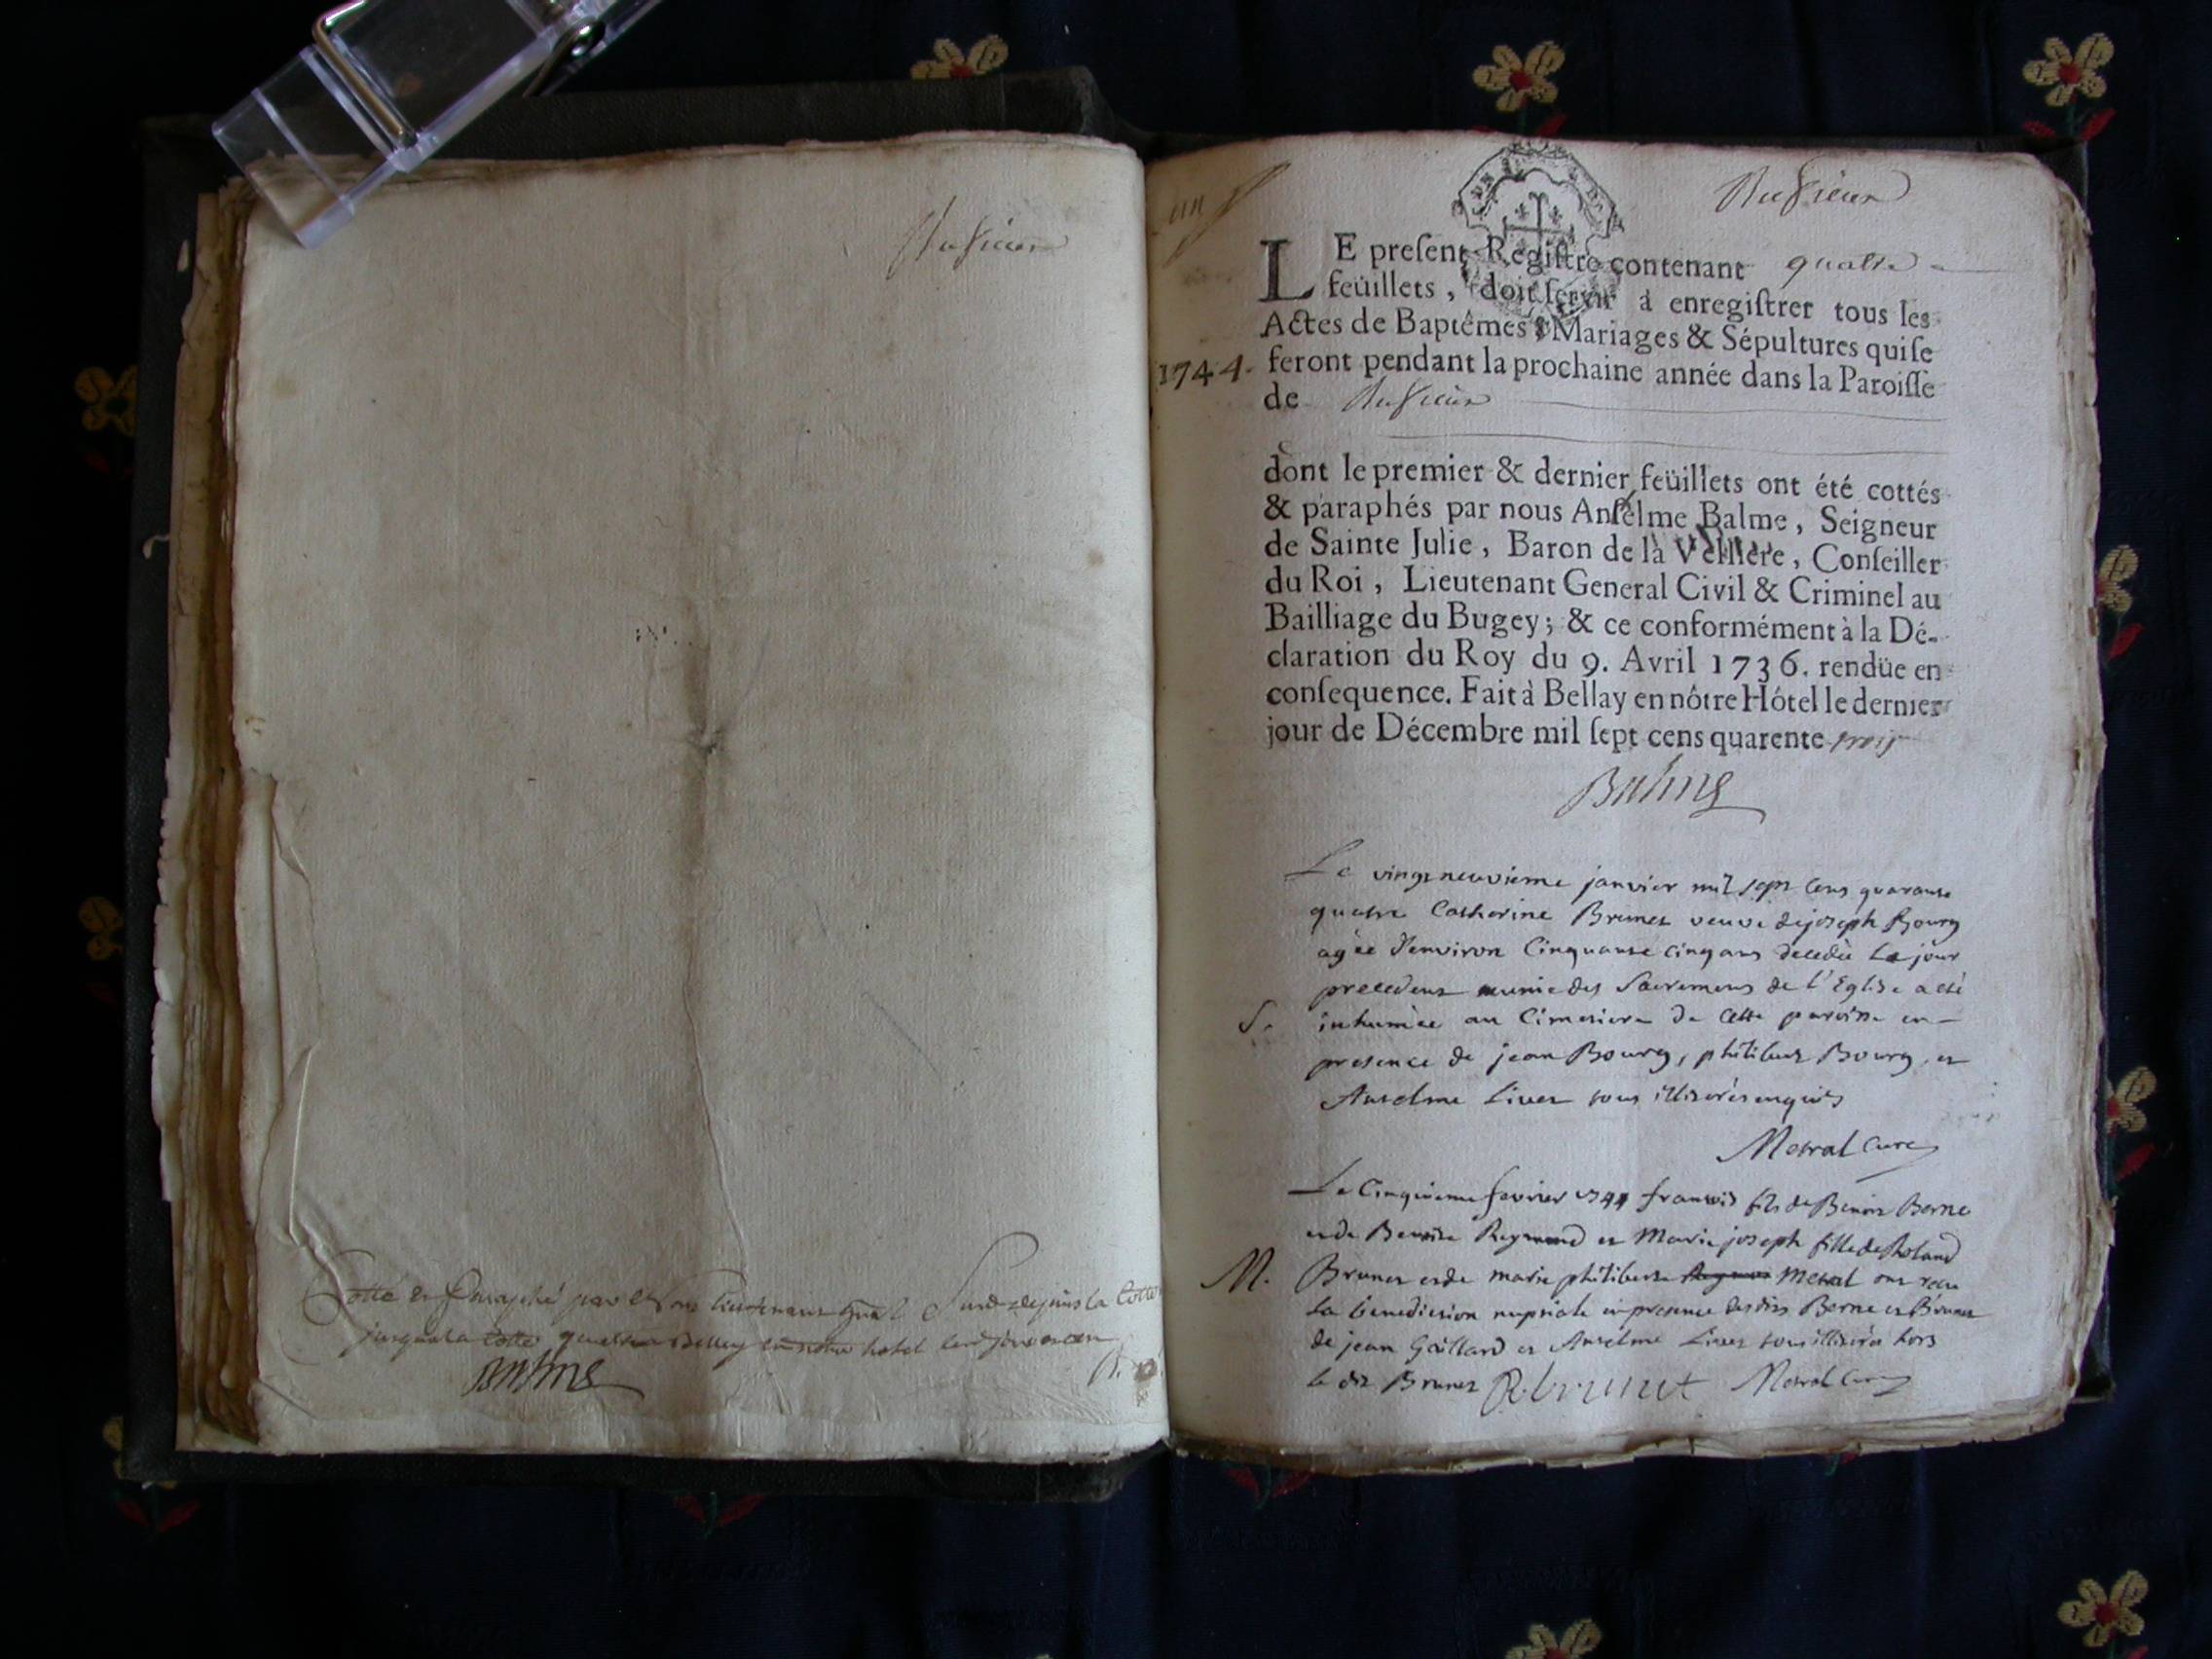 Rufsieux
Cotté et Paraphé par Nous lieutenant gnal susd depuis la cotte
jusqua la cotte quatre a Belley en notre hotel
Balme
un
Rufsieux
LE preſent Regiſtre contenant quatre
feüillets, doit ſervir à enregiſtrer tous les
Actes de Baptêmes, Mariages & Sépultures qui ſe
1744. feront pendant la prochaine année dans la Paroiſſe
de Rufsieux
dont le premier & dernier feüillets ont été cottés
& paraphés par nous Anſelme Balme, Seigneur
de Sainte Julie, Baron de la Velliere, Conſeiller
du Roi, Lieutenant General Civil & Criminel au
Bailliage du Bugey; & ce conformément à la Dé-
claration du Roy du 9. Avril 1736. rendüe en
conſequence. Fait à Bellay en nôtre Hôtel le dernier
jour de Décembre mil ſept cens quarente trois
Balme
Le vingt neuvieme janvier mil sept cens quarante
quatre Catherine Brunet veuve de joseph Bourg
agée d'environ Cinquante cinq ans decedée le jour
precedent munie des Sacremens de l'Eglise a eté
S. inhumée au Cimetiere de cette paroisse en
presence de jean Bourg, philibert Bourg, et
Anselme Livet tous illiterés enquis
Metral Curé
Le Cinquieme fevrier 1744 francois fils de Benoit Berne
et de Benoite Reymond et Marie joseph fille de Roland
M. Brunet et de marie philiberte Metral ont recu
la benediction nuptiale en presence desdits Berne et Brunet
de jean Gaillard et Anselme Livet tous illiterés hors
le dit Brunet R brunet Metral Curé